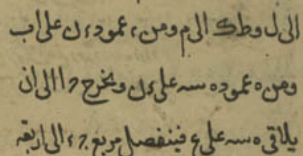 الى ل وط ك الى م ومن ء عمود ء ن على ا ب
ومن ه عمود ه سه على ء ن ويخرج ح ا الى ان
يلاقى ه سه على ع فينفصل مربع ء الى اربعة